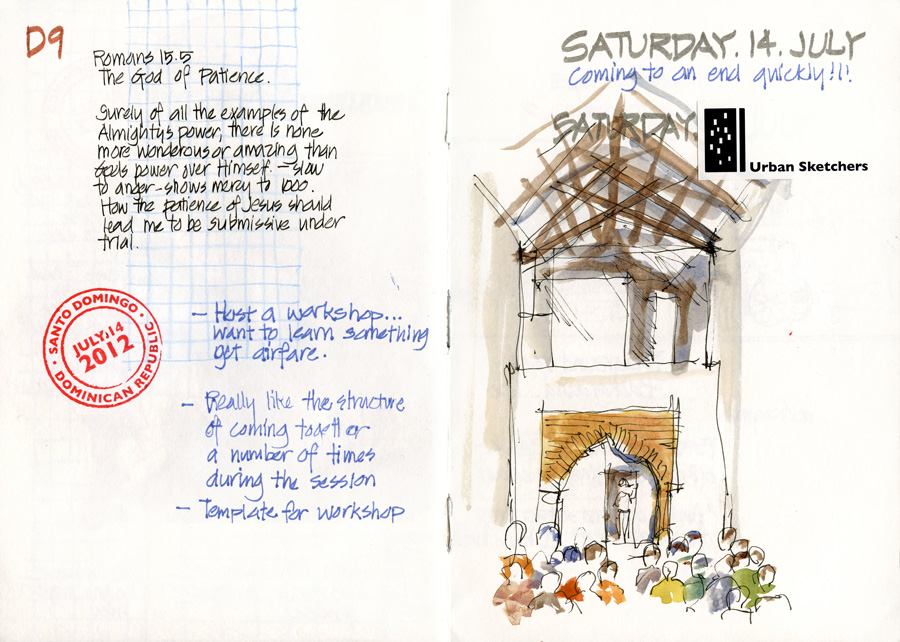 D9
Romans 15.5
The God of Patience.
Surely of all the examples of the
Almighty's power, there is none
more wonderous or amazing than
God's power over Himself – slow
to anger - shows mercy to 1000.
How the patience of Jesus should
lead me to be submissive under
trial.
SANTO DOMINGO
JULY.14
2012
DOMINICAN REPUBLIC
– Host a workshop...
want to learn something
get airfare.
– Really like the structure
of coming together
a number of times
during the session
– Template for workshop
SATURDAY. 14. JULY
coming to an end quickly!!!
SATURDAY.
Urban Sketchers